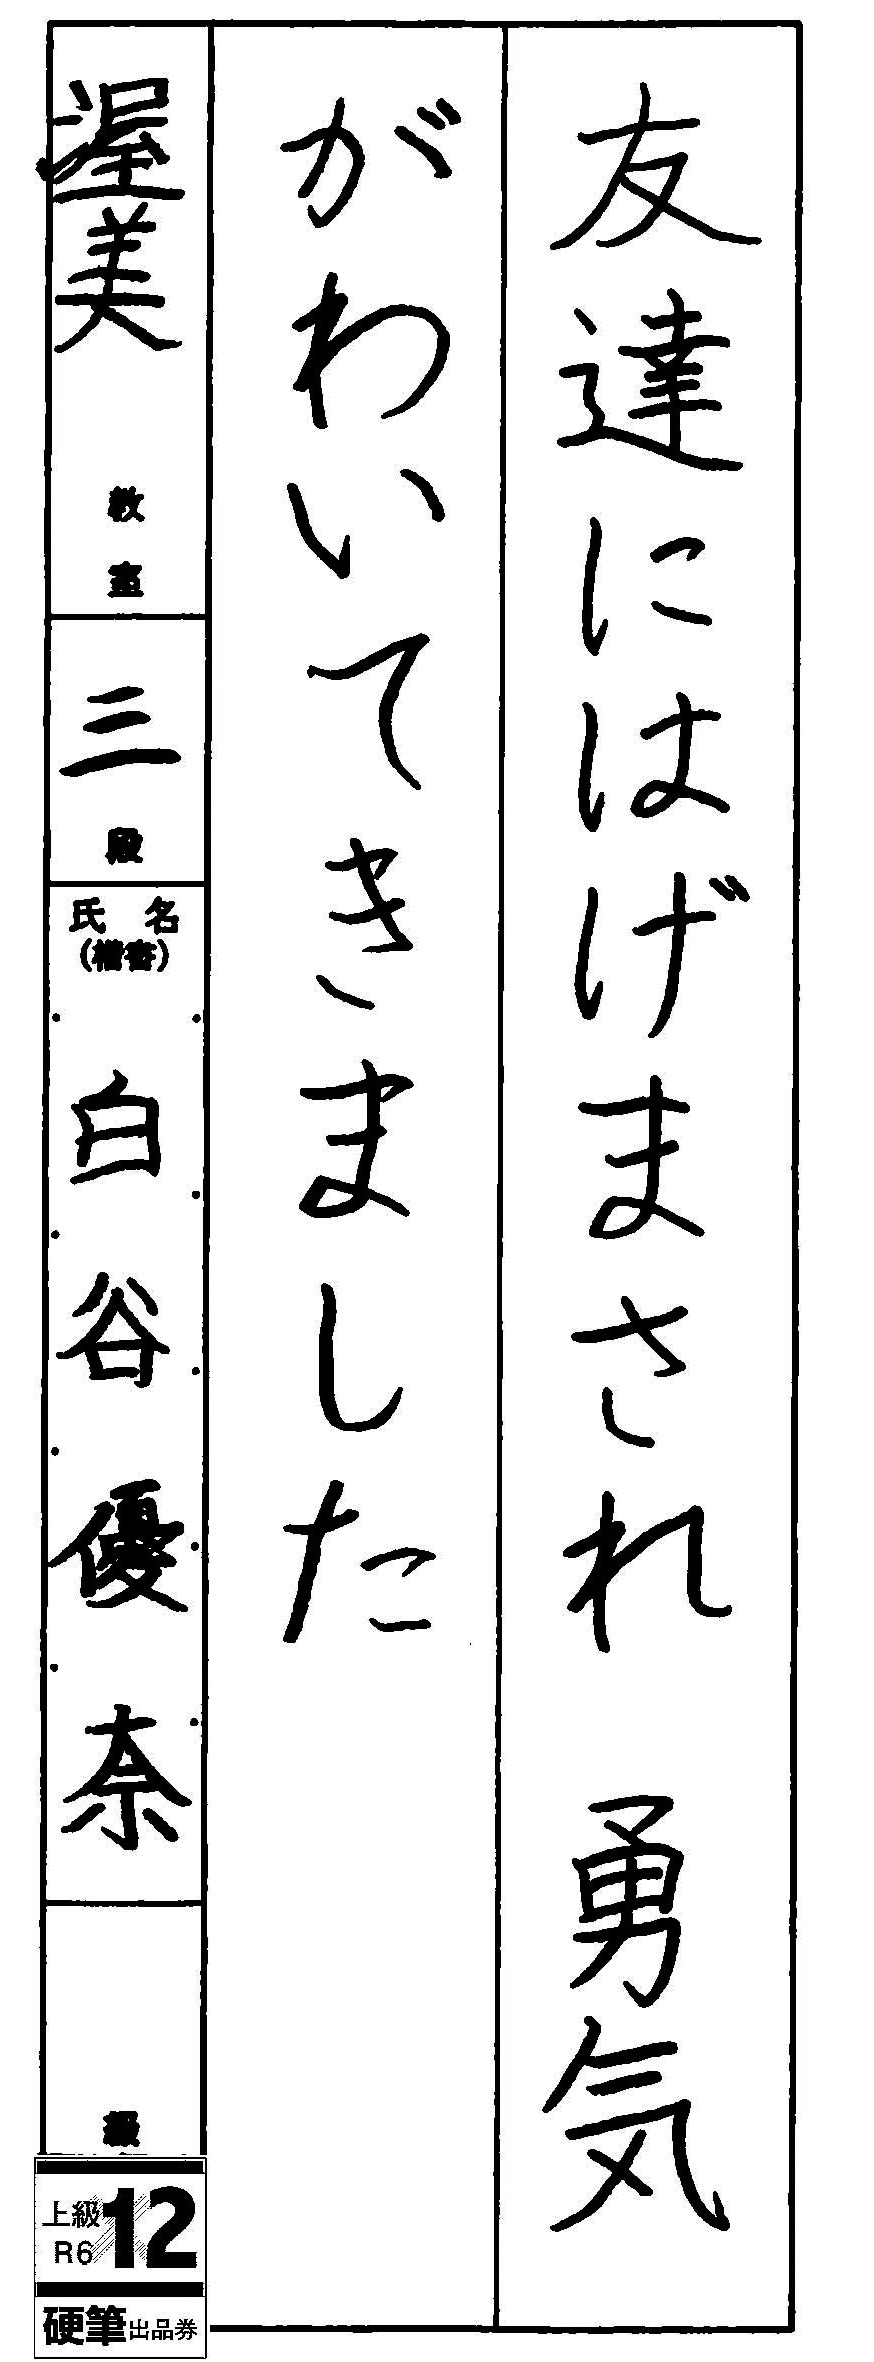 友達にはげまされ 勇気
がわいてきました
渥美 教室
三 段
氏名
(楷書)
白谷優奈
級
上級 12
R6
硬筆出品券